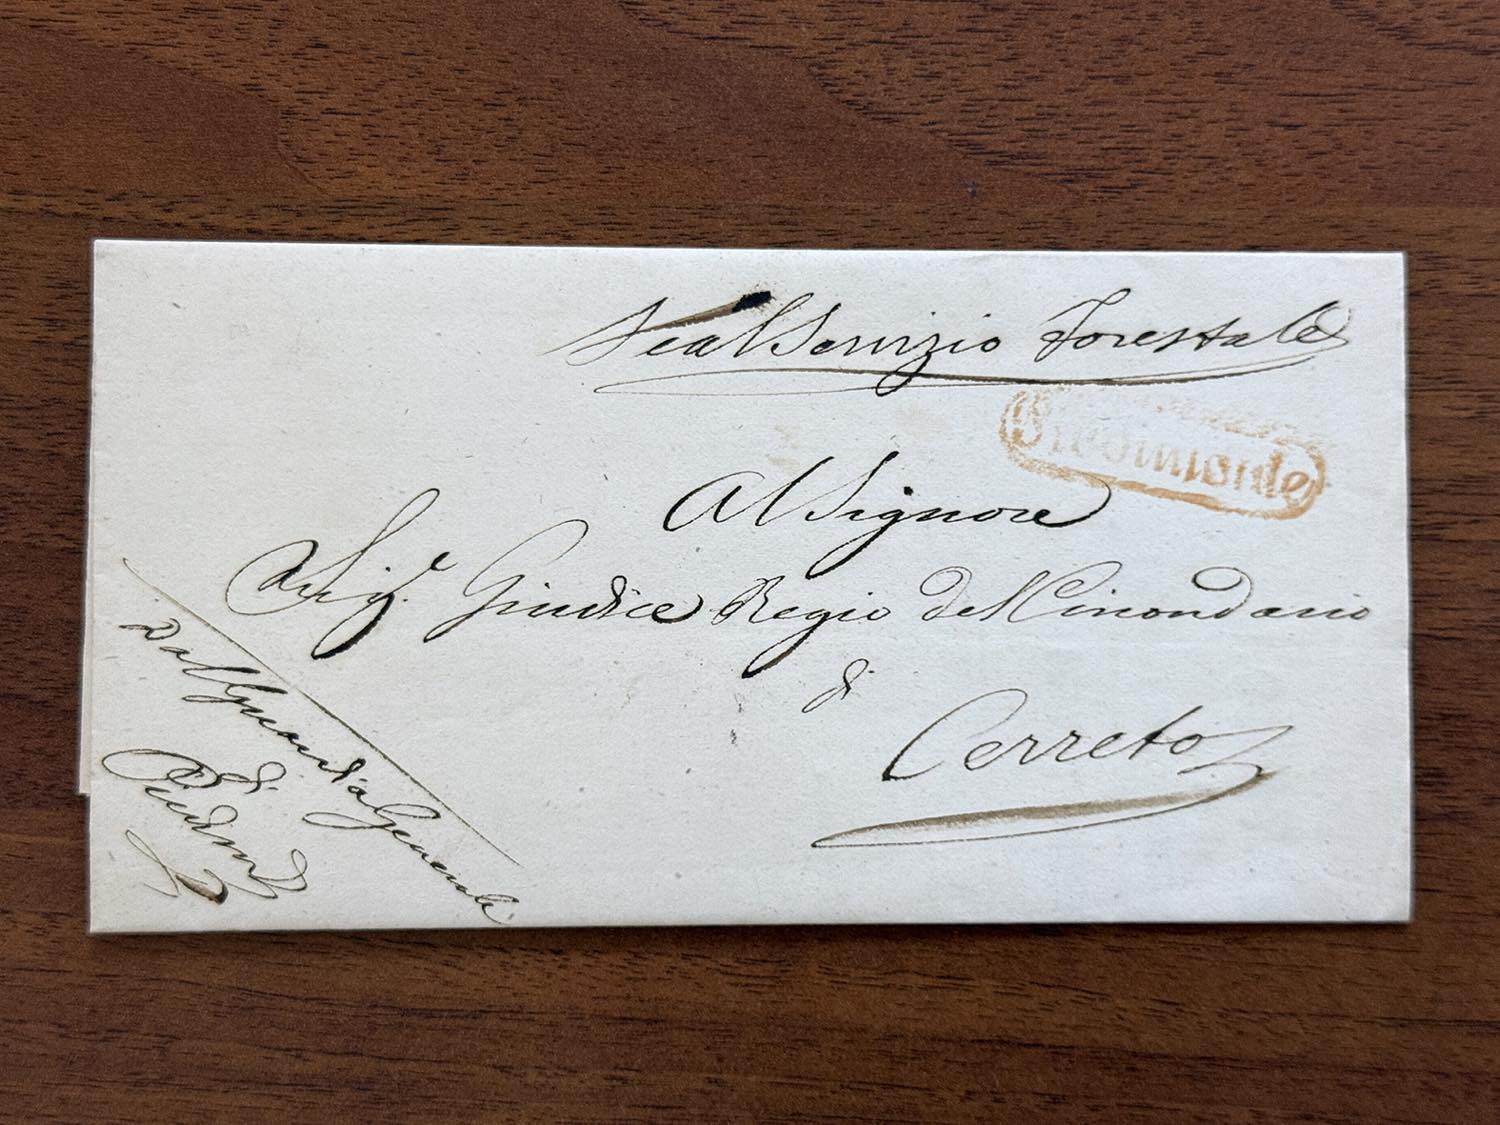 Real Servizio Forestale
Piedimonte
Al Signore
Sig.r Giudice Regio del Circondario
di
Cerreto
Dal Guardia Generale
di